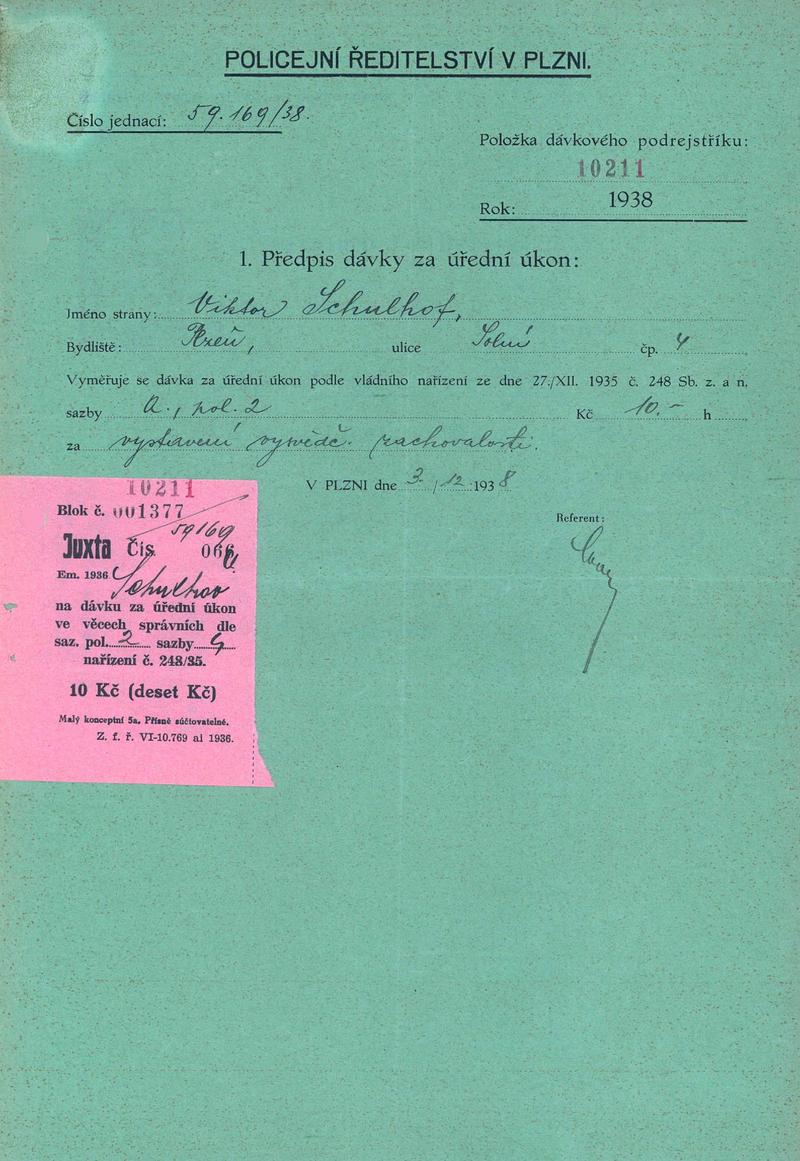 POLICEJNÍ ŘEDITELSTVÍ V PLZNI.
Číslo jednací: 59.169/38.
Položka dávkového podrejstříku:
10211
Rok: 1938
1. Předpis dávky za úřední úkon:
Jméno strany: Viktor Schulhof,
Bydliště: Plzeň, ulice Solní čp. 4
Vyměřuje se dávka za úřední úkon podle vládního nařízení ze dne 27./XII. 1935 č. 248 Sb. z. a n.
sazby A., pol. 2 Kč 10.- h
za vystavení vysvědč. zachovalosti.
V PLZNI dne 3./12.1938
Referent:
10211
Blok č. 001377
59169
Juxta Čís. 066
Em. 1936 Schulhov
na dávku za úřední úkon
ve věcech správních dle
saz. pol. 2 sazby
nařízení č. 248/35.
10 Kč (deset Kč)
Malý konceptní 5a. Přísně súčtovatelné.
Z. f. ř. VI-10.769 ai 1936.